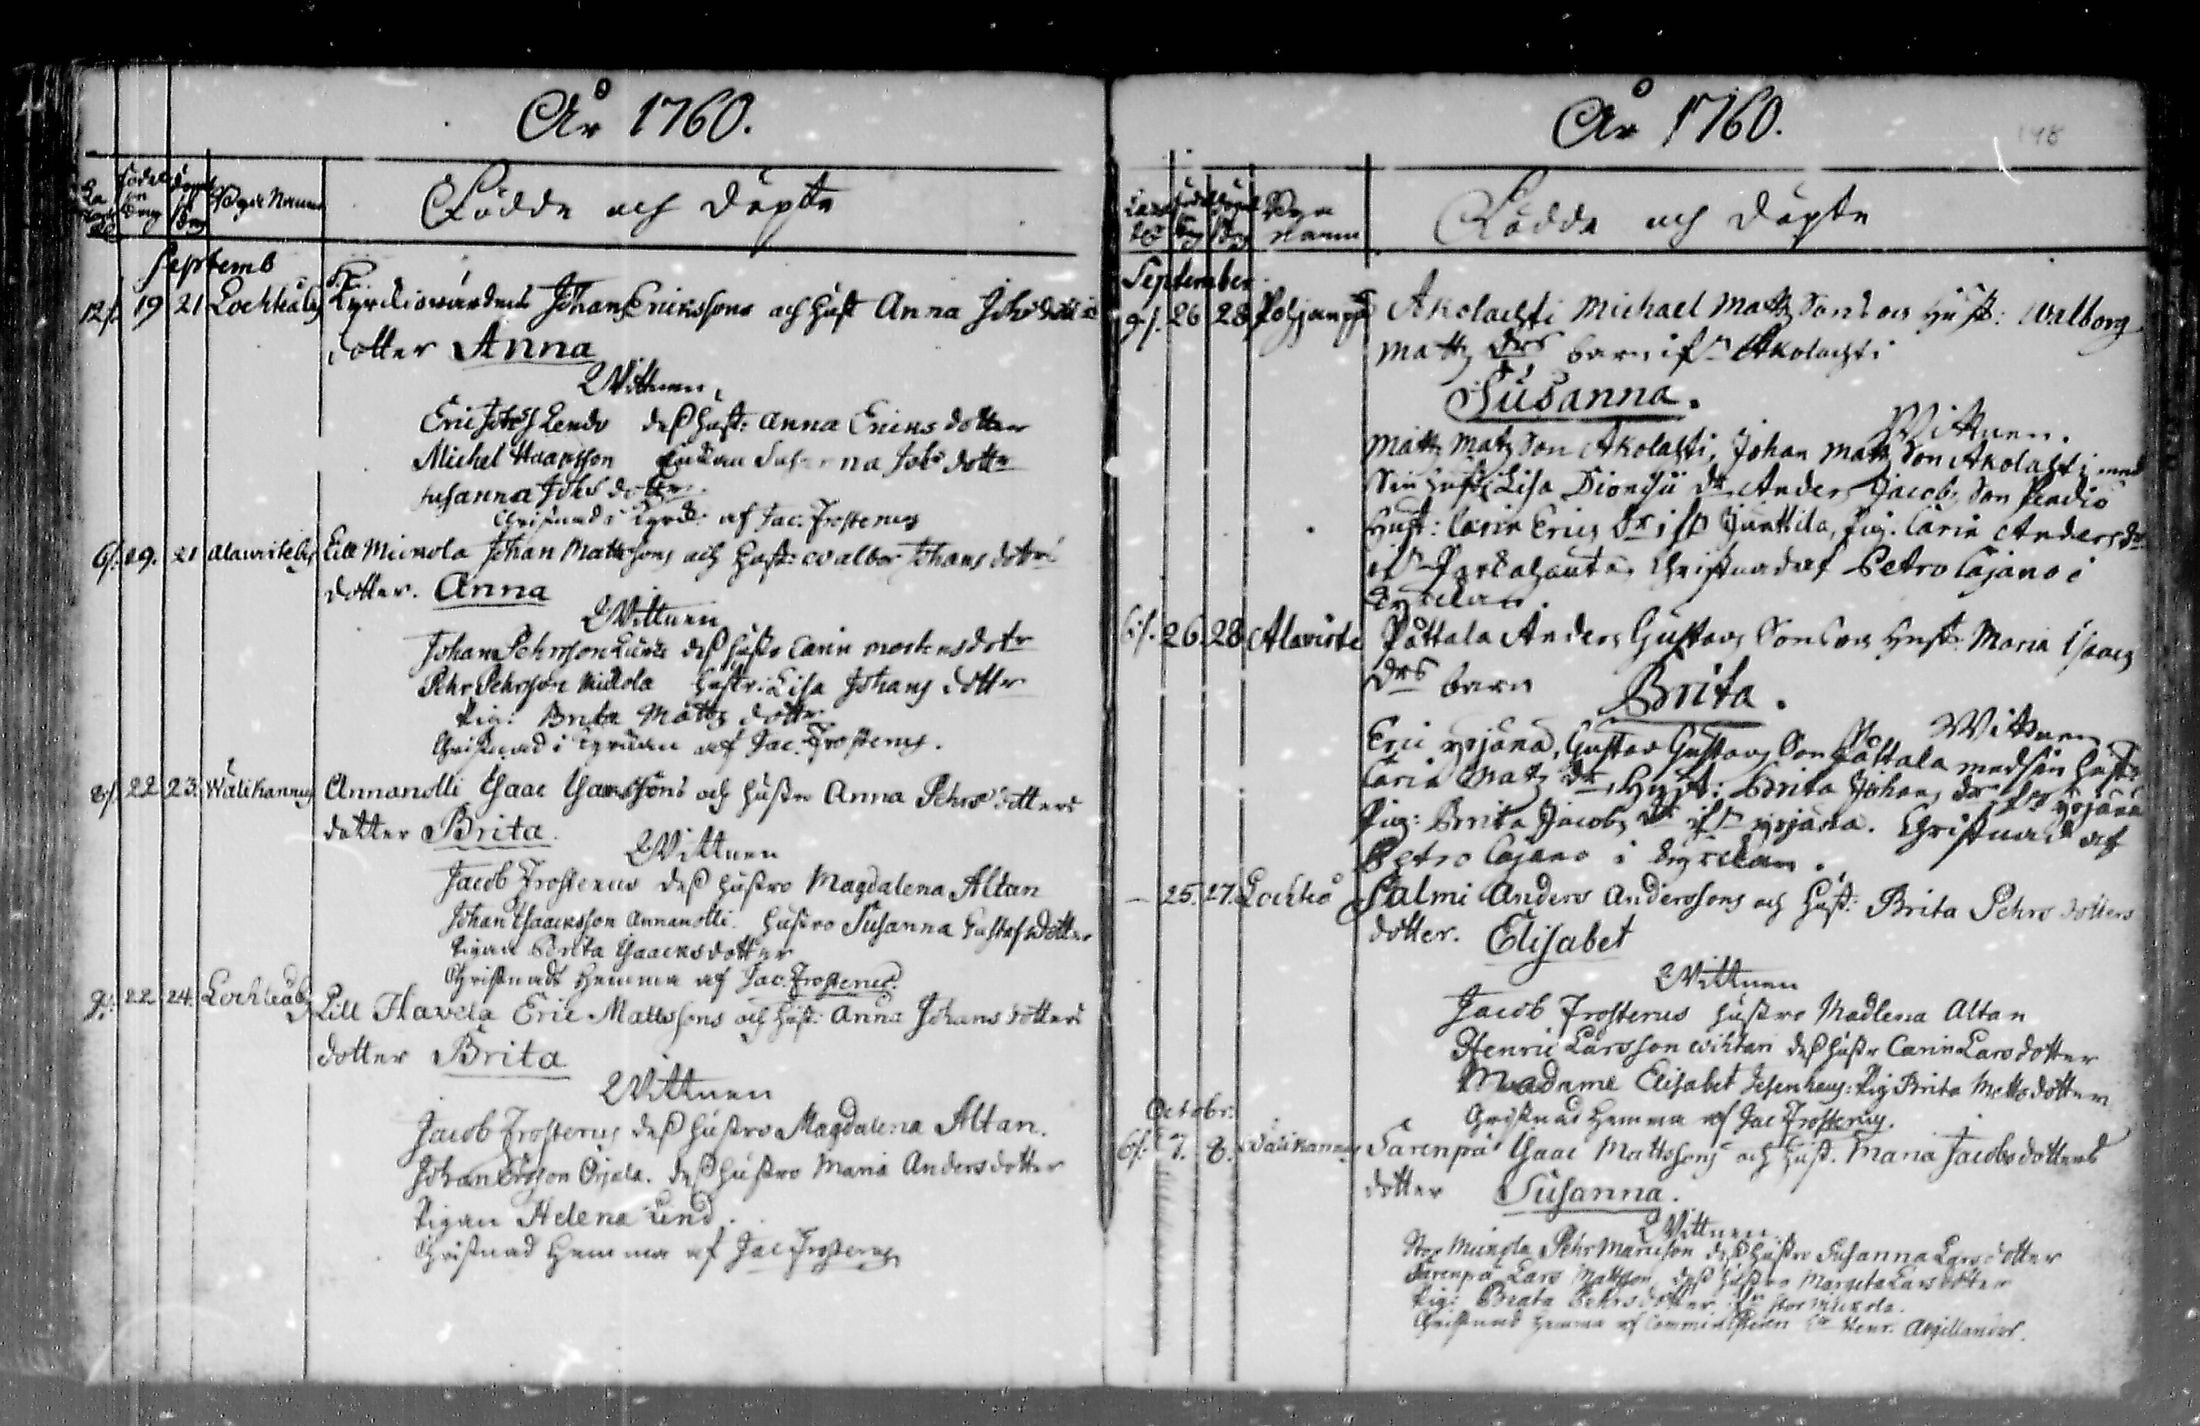 År 1760.
Födde och Döpte
Septemb
12/. 19 21 Lochteåby Kyrckiowärdens Johan Erikssons och Hust Anna Johs dotters
dotter Anna
Wittnen
Eric Johss Lends dess Hust: Anna Eriks dotter
Michel Haapsson Enkan Susanna Johs dotter
Susanna Johs dotter
Christnad i Kyrck: af Jac: Frosterus
6/. 19. 21 Alawirteby Lill Mickola Johan Mattssons och Hust: Walbor Johans dotters
dotter. Anna
Wittnen
Johan Pehrsson dess Hustr Carin Mortensdotr
Pehr Pehrsson Mickola Hustr: Lisa Johans dotter
Pig: Brita Matts dotter
Christnad i Kyrckan af Jac. Frosterus.
8/. 22 23. Wälikannus Annanolli Isaac Isaacssons och Hustru Anna Pehrs dotters
dotter Brita.
Wittnen
Jacob Frosterus dess Hustro Magdalena Altan
Johan Isaacksson Annanolli. Hustro Susanna Gustafsdotter
Pigan Brita Isaacksdotter
Christnadt Hemma af Jac. Frosterus.
9/. 22 24. Lochteåby Lill Flavela Eric Mattssons och Hust: Anna Johans dotters
dotter Brita
Wittnen
Jacob Frosterus dess Hustro Magdalena Altan.
Johan Ersson Örjala. dess Hustro Maria Andersdotter
Pigan Helena Lind.
Christnad Hemma af Jac Frosterus
År 1760.
148
Födde och Döpte
September
9/. 26 28 Pohjanpä Akolachti Michael Matts Sons och Hust: Walborg
Matts drs barn ifrn Akolachti
Susanna.
Wittnen.
Matts Mats Son Akolahti, Johan Matts Son Akolahti med
Sin Hustr Lisa Dionisii dr Anders Jacobs Son
Hust: Carin Erics dr ifrn Junttila, Pig. Carin Anders dr
Christnad af Petro Cajano i
Kyrckan.
6/. 26. 28 Alawirte Påttala Anders Gustavs Sons och Hust: Maria Isaacs
drs barn Brita.
Wittnen
Eric Yrjänä, Gustav Gustavs Son Påttala med sin Hustr
Carin Mats dr, Hust: Brita Johans dr ifrn Yrjänä
Pig: Brita Jacobs dr ifrn Yrjänä. Christnad af
Petro Cajano i Kyrckan.
— 25. 27. Lochteå Salmi Anders Anderssons och Hust: Brita Pehrs dotters
dotter. Elisabet
Wittnen
Jacob Frosterus Hustro Madlena Altan
Henric Larsson Wihtan dess Hustr Carin Larsdotter
Madame Elisabet Jesenhaus: Pig Brita Mattsdotter
Christnad Hemma af Jac Frosterus.
Octobr:
6/. 7. 8. Wälikannus Särenpä Isaac Mattssons och Hust. Maria Jacobs dotters
dotter Susanna.
Wittnen.
Stor Mickola Pehr Mariison dess Hustro Susanna Larsdotter
Särenpä Lars Mattsson dess Hustro Margeta Larsdotter
Pig: Beata Pehrsdotter frn Stor Mickola.
Christnad Hemma af Comministern Hr Henr. Argillander.